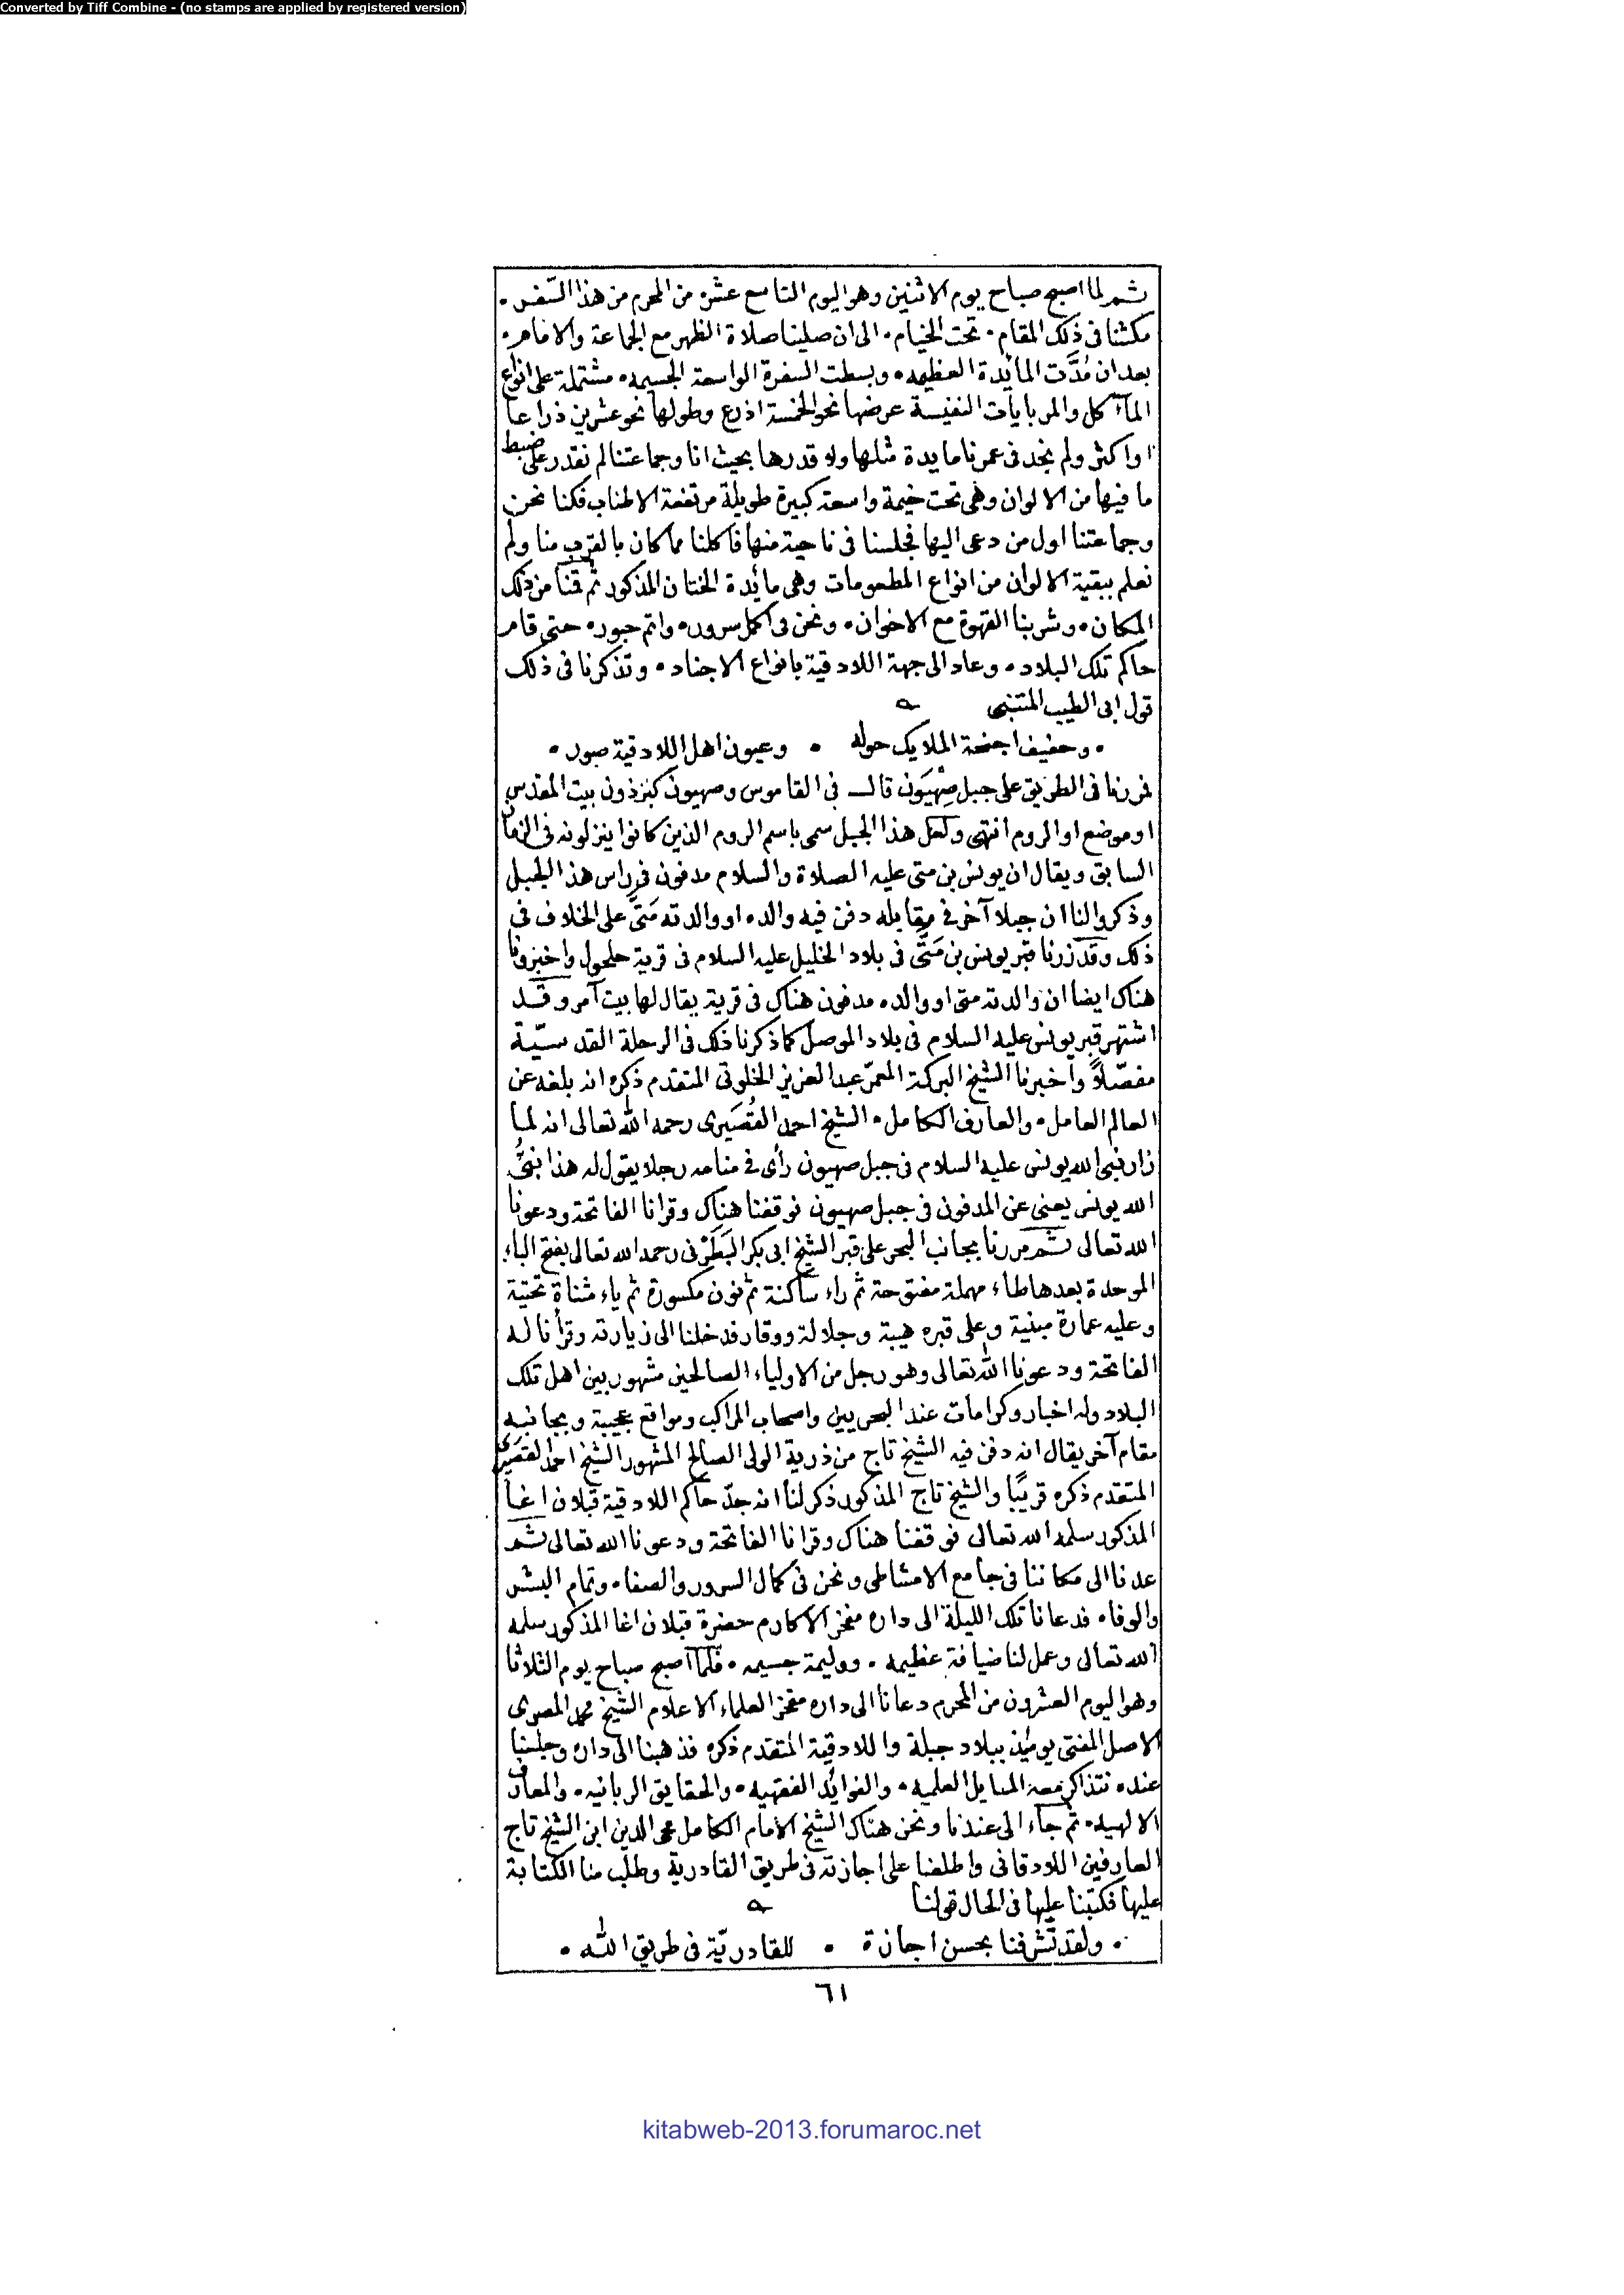 Converted by Tiff Combine - (no stamps are applied by registered version)
ثم لما اصبح صباح يوم الاثنين وهو اليوم التاسع عشر من المحرم من هذا السّفر •
مكثنا فى ذلك المقام • تحت الخيام • الى ان صلينا صلاة الظهر مع الجماعة والامام •
بعد ان مُدَّت المائدة العظيمه • وبسطت السفرة الواسعة الجسيمه • مشتملة على انواع
المآكل والمربايات النفيسة عرضها نحو الخمسة اذرع وطولها نحو عشرين ذراعا
او اكثر ولم نجد فى عمرنا مايدة مثلها ولا قدرها بحيث انا وجماعتنا لم نقدر على ضبط
ما فيها من الالوان وهى تحت خيمة واسعة كبيرة طويلة مرتفعة الاطناب فكنا نحن
وجماعتنا اول من دعى اليها فجلسنا فى ناحية منها فاكلنا مما كان بالقرب منا ولم
نعلم ببقية الالوان من انواع المطعومات وهى مائدة الختان المذكور ثم قمنا من ذلك
المكان • وشربنا القهوة مع الاخوان • ونحن فى اكمل سرور • واتم حبور • حتى قام
حاكم تلك البلاد • وعاد الى جهة اللادقية بانواع الاجناد • وتذكرنا فى ذلك
قول ابى الطيب المتنبى
• وحفيف اجنحة الملايك حوله • وعيون اهل اللادقية صور •
فمررنا فى الطريق على جبل صِهْيَون قال فى القاموس وصهيون كبرذون بيت المقدس
او موضع او الروم انتهى ولعل هذا الجبل سمى باسم الروم الذين كانوا ينزلونه فى الزمان
السابق ويقال ان يونس بن متى عليه الصلاة والسلام مدفون فى راس هذا الجبل
وذكروا لنا ان جبلا آخر فى مقابله دفن فيه والده او والدته مَتَّى على الخلاف فى
ذلك وقد زرنا قبر يونس بن مَتَّى فى بلاد الخليل عليه السلام فى قرية حلحول واخبرونا
هناك ايضا ان والدته متى او والده مدفون هناك فى قرية يقال لها بيت آمر وقد
اشتهر قبر يونس عليه السلام فى بلاد الموصل كما ذكرنا ذلك فى الرحلة القدسيّة
مفصّلاً واخبرنا الشيخ البركة المعمّر عبد العزيز الخلوتى المتقدم ذكره انه بلغه عن
العالم العامل • والعارف الكامل • الشيخ احمد القُصَيرى رحمه الله تعالى انه لما
زار نبى الله يونس عليه السلام فى جبل صهيون رأى فى منامه رجلا يقول له هذا نبىُّ
الله يونس يعنى عن المدفون فى جبل صهيون فوقفنا هناك وقرانا الفاتحة ودعونا
الله تعالى ثم مررنا بجانب البحر على قبر الشيخ ابى بكر البَطَرْنى رحمه الله تعالى بفتح الباء
الموحدة بعدها طاء مهملة مفتوحة ثم راء ساكنة ثم نون مكسورة ثم ياء مثناة تحتيّة
وعليه عمارة مبنية وعلى قبره هيبة وجلالة ووقار فدخلنا الى زيارته وقرأنا له
الفاتحة ودعونا الله تعالى وهو رجل من الاولياء الصالحين مشهور بين اهل تلك
البلاد وله اخبار وكرامات عند البحريين واصحاب المراكب ومواقع عجيبة وبجانبه
مقام آخر يقال انه دفن فيه الشيخ تاج من ذرية الولى الصالح المشهور الشيخ احمد القصيرى
المتقدم ذكره قريبًا والشيخ تاج المذكور ذكر لنا انه جدّ حاكم اللادقية قبلان اغا
المذكور سلمه الله تعالى فوقفنا هناك وقرانا الفاتحة ودعونا الله تعالى ثم
عدنا الى مكاننا فى جامع الامشاطى ونحن فى كمال السرور والصفاء وتمام البشر
والوفاء فدعانا تلك الليلة الى داره مفخر الاكارم حضرة قبلان اغا المذكور سلمه
الله تعالى وعمل لنا ضيافة عظيمه • ووليمة جسيمه • فلما اصبح صباح يوم الثلاثا
وهو اليوم العشرون من المحرم دعانا الى داره مفخر العلماء الاعلام الشيخ محمد المصرى
الاصل المفتى يومئذ ببلاد جبلة واللادقية المتقدم ذكره فذهبنا الى داره وجلسنا
عنده نتذاكر معه المسايل العلميه • والفوائد الفقهيه • والحقايق الربانيه • والمعارف
الالهيه • ثم جاء الى عندنا ونحن هناك الشيخ الامام الكامل محى الدين ابن الشيخ تاج
العارفين اللادقانى واطلعنا على اجازته فى طريق القادرية وطلب منا الكتابة
عليها فكتبنا عليها فى الحال قولنا
• ولقد تشرفنا بحسن اجازة • للقادريّة فى طريق الله •
٦١
kitabweb-2013.forumaroc.net